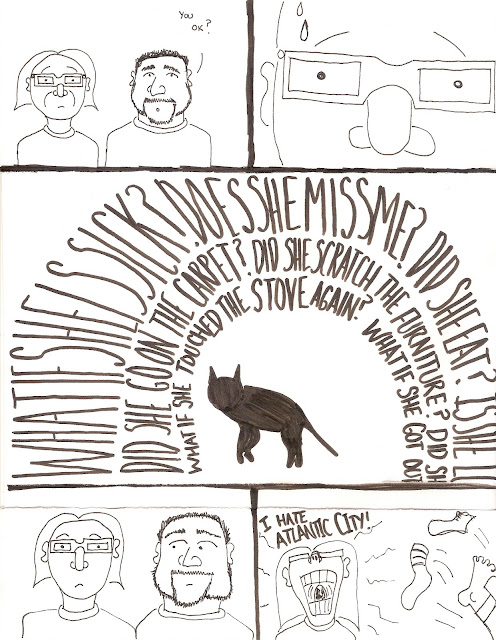 YOU
OK?
WHAT IF SHE IS SICK? DOES SHE MISS ME? DID SHE EAT? IS SHE
DID SHE GO ON THE CARPET? DID SHE SCRATCH THE FURNITURE? DID SH
WHAT IF SHE TOUCHED THE STOVE AGAIN? WHAT IF SHE GOT OUT
I HATE
ATLANTIC CITY!